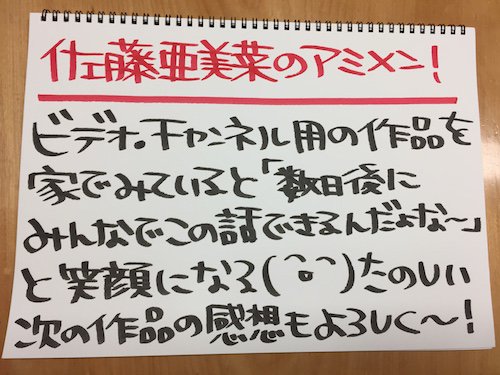 佐藤亜美菜のアミメン!
ビデオ。チャンネル用の作品を
家でみていると「数日後に
みんなでこの話できるんだよな〜」
と笑顔になる(^o^)たのしい
次の作品の感想もよろしく〜!